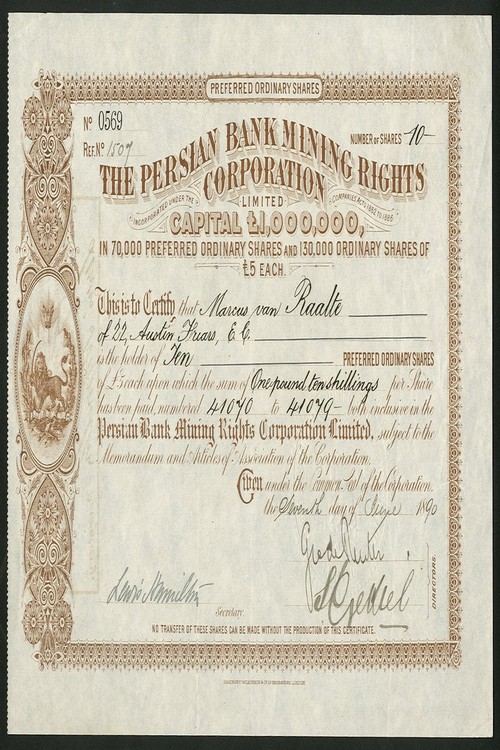 PREFERRED ORDINARY SHARES
Nº 0569
REF. Nº 1507
NUMBER OF SHARES 10-
THE PERSIAN BANK MINING RIGHTS
CORPORATION
LIMITED
INCORPORATED UNDER THE COMPANIES ACTS 1862 TO 1886.
CAPITAL £1,000,000,
IN 70,000 PREFERRED ORDINARY SHARES AND 130,000 ORDINARY SHARES OF
£5 EACH.
This is to Certify that Marcus van Raalte
of 22, Austin Friars, E.C.
is the holder of Ten PREFERRED ORDINARY SHARES
of £5 each upon which the sum of One pound ten shillings per Share
has been paid, numbered 41070 to 41079- both inclusive in the
Persian Bank Mining Rights Corporation Limited, subject to the
Memorandum and Articles of Association of the Corporation.
Given under the Common Seal of the Corporation.
the Seventh day of June 1890
DIRECTORS.
Lewis Hamilton
Secretary.
NO TRANSFER OF THESE SHARES CAN BE MADE WITHOUT THE PRODUCTION OF THIS CERTIFICATE.